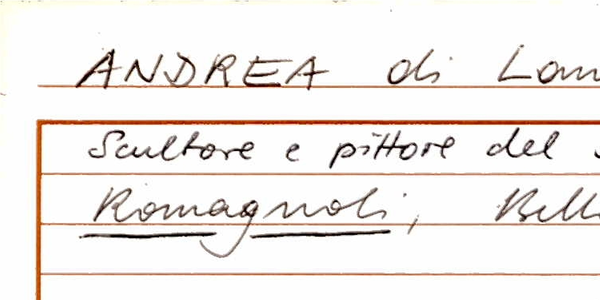 ANDREA di
Scultore e pittore del
Romagnoli,